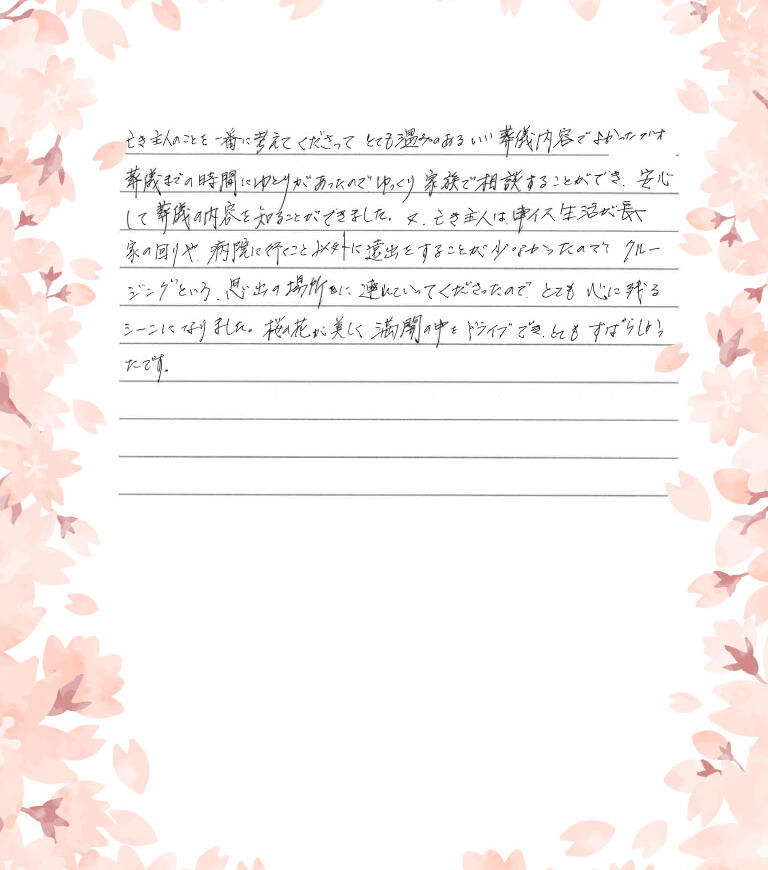 亡き主人のことを一番に考えてくださって とても温かみのあるいい葬儀内容でよかったです
葬儀までの時間にゆとりがあったのでゆっくり家族で相談することができ、安心
して葬儀の内容を知ることができました。又、亡き主人は車イス生活が長く
家の回りや、病院に行くこと以外に遠出をすることが少なかったので、クルー
ジングという、思い出の場所に連れていってくださったので、とても心に残る
シーンになりました。桜の花が美しく満開の中をドライブでき、とてもすばらしかっ
たです。